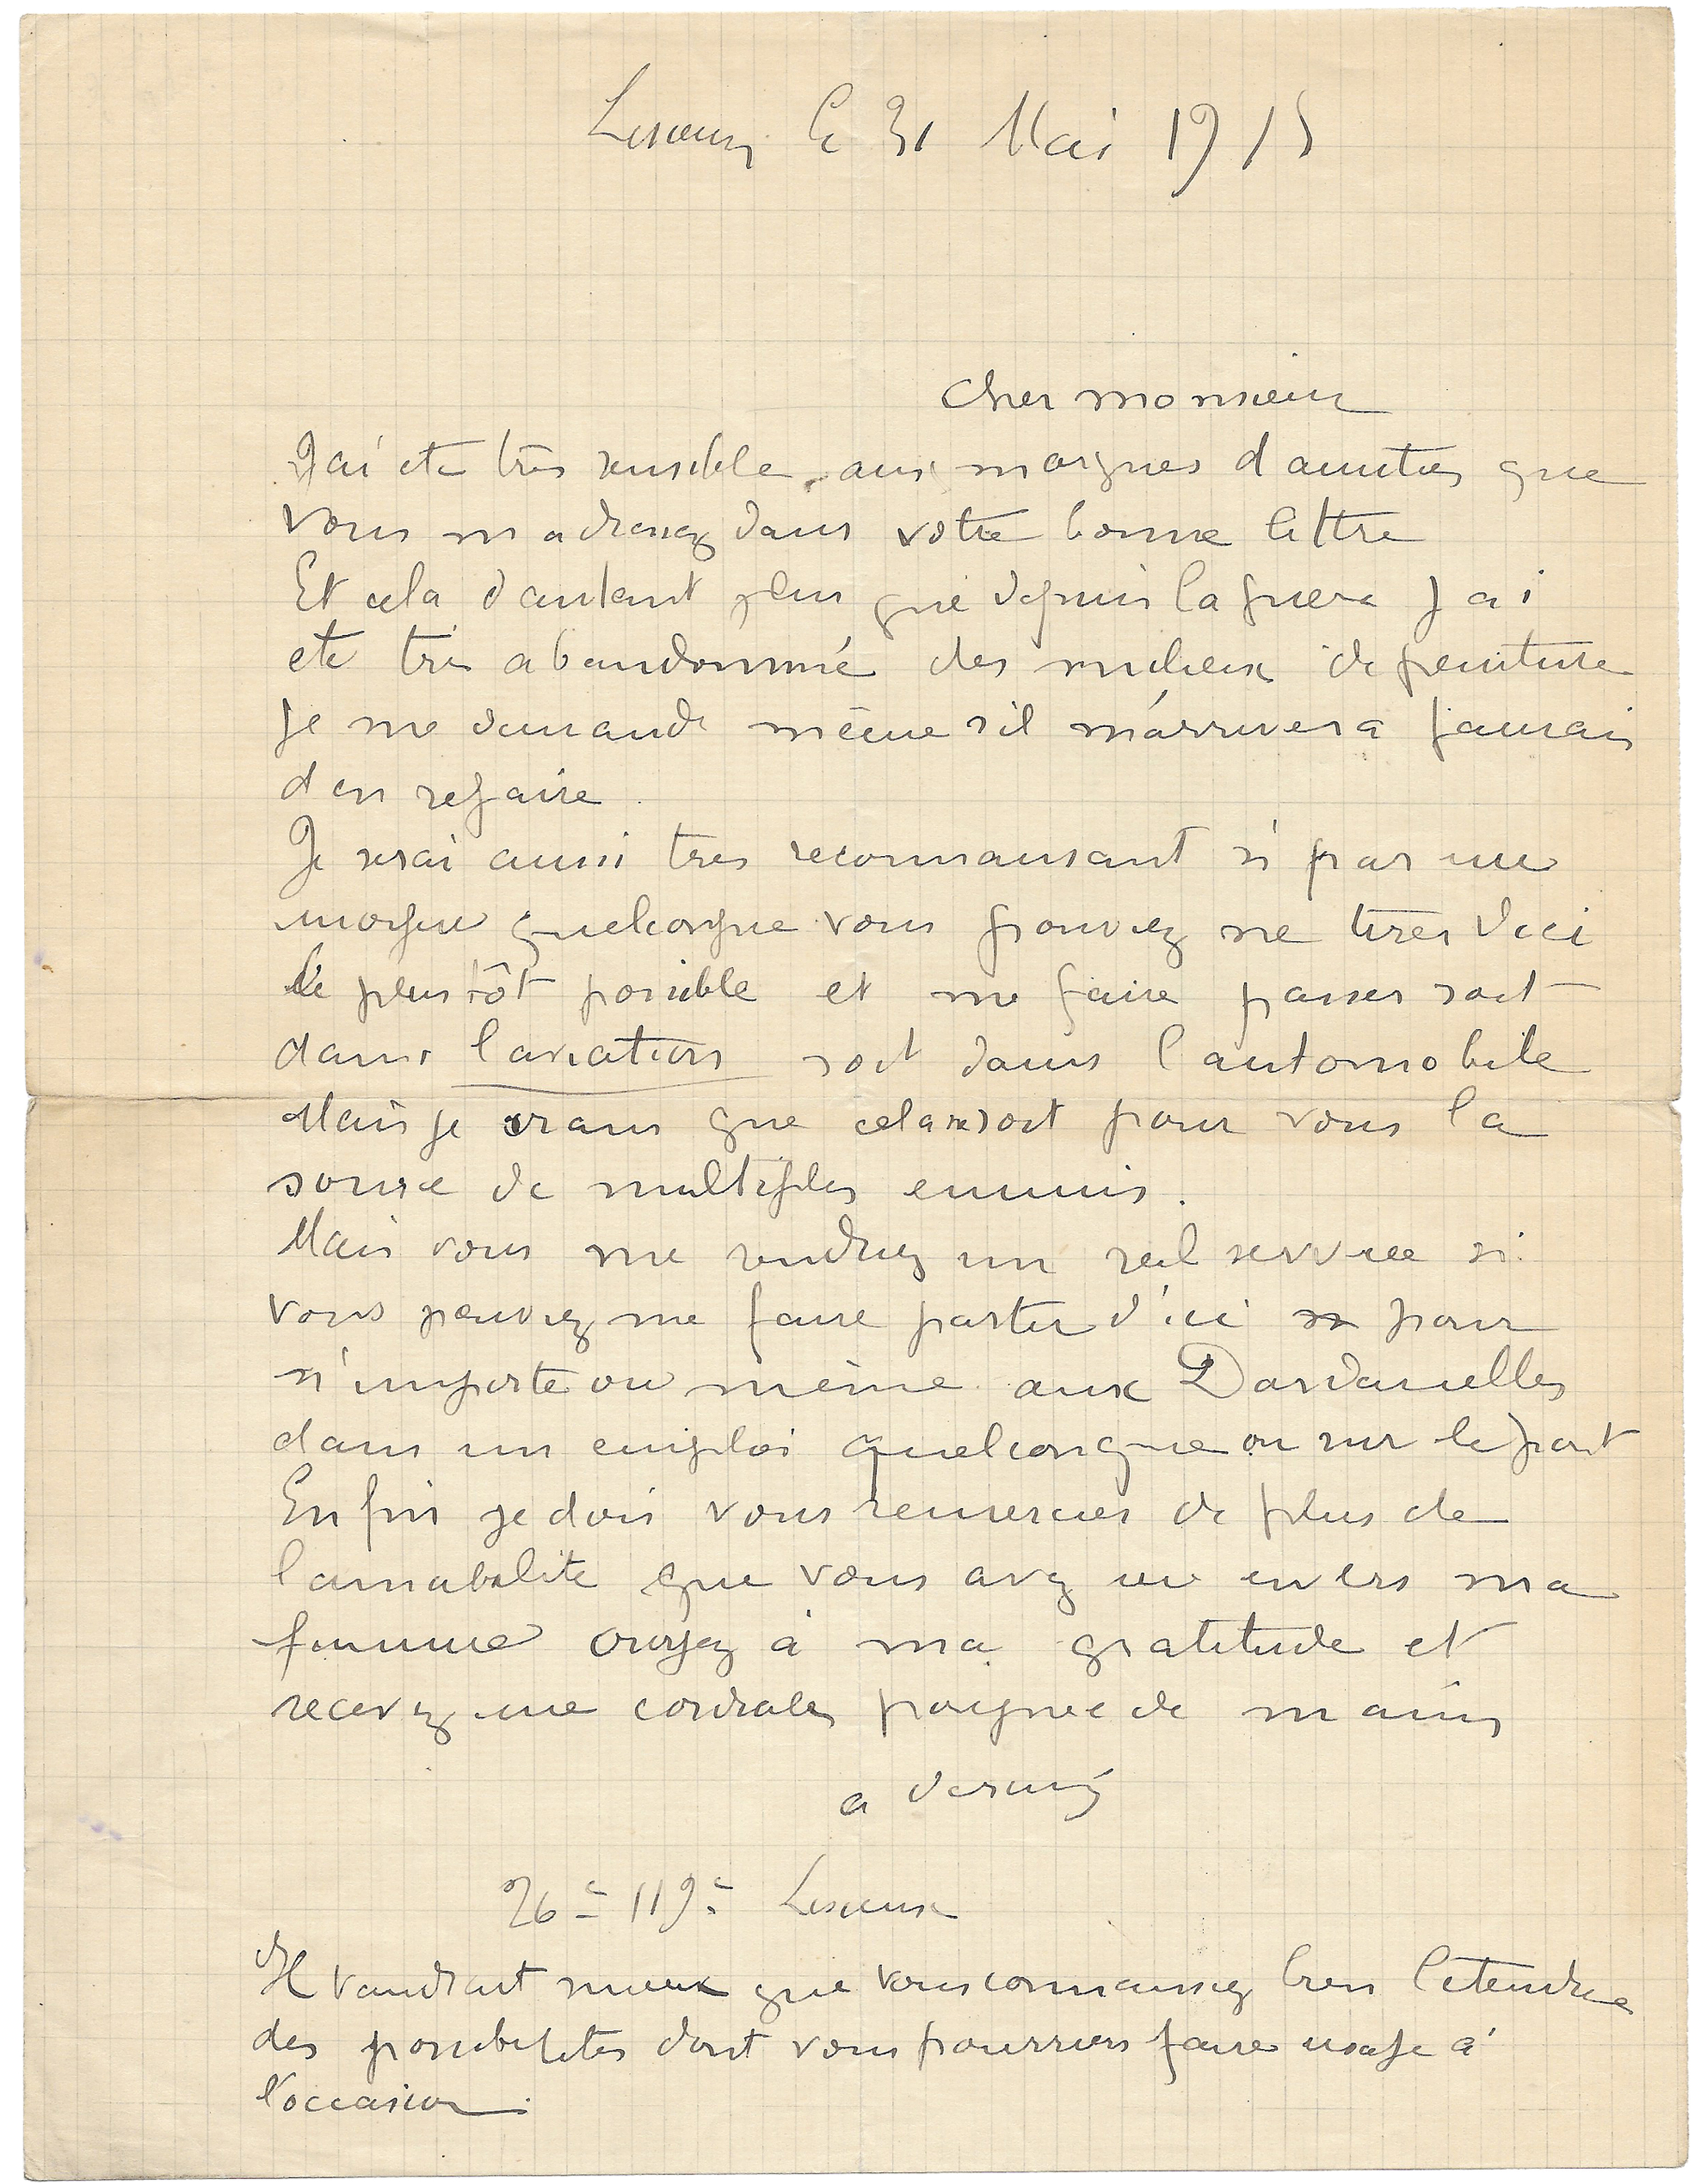 Lisieux le 31 Mai 1915
Cher monsieur
J'ai ete très sensible aux marques d'amities que
vous m adressez dans votre bonne lettre
Et cela d autant plus que depuis la guerre J ai
ete très abandonné des milieux de peinture
Je me demande même s il m'arrivera jamais
d en refaire.
Je serai aussi tres reconnaissant si par un
moyen quelconque vous pouviez me tirer d ici
le plus tôt possible et me faire passer soit
dans l aviation soit dans l automobile
Mais je crains que cela ne soit pour vous la
source de multiples ennuis.
Mais vous me rendriez un reel service si
vous pouviez me faire partir d'ici pour
n'importe ou même aux Dardanelles
dans un emploi quelconque ou sur le front
Enfin je dois vous remercier de plus de
l amabilite que vous avez eu envers ma
femme croyez à ma gratitude et
recevez une cordiales poignee de mains
a derain
26e 119e Lisieux
Il vaudrait mieux que vous connaissiez bien l etendue
des possibilites dont vous pourriers faire usage à
l'occasion.